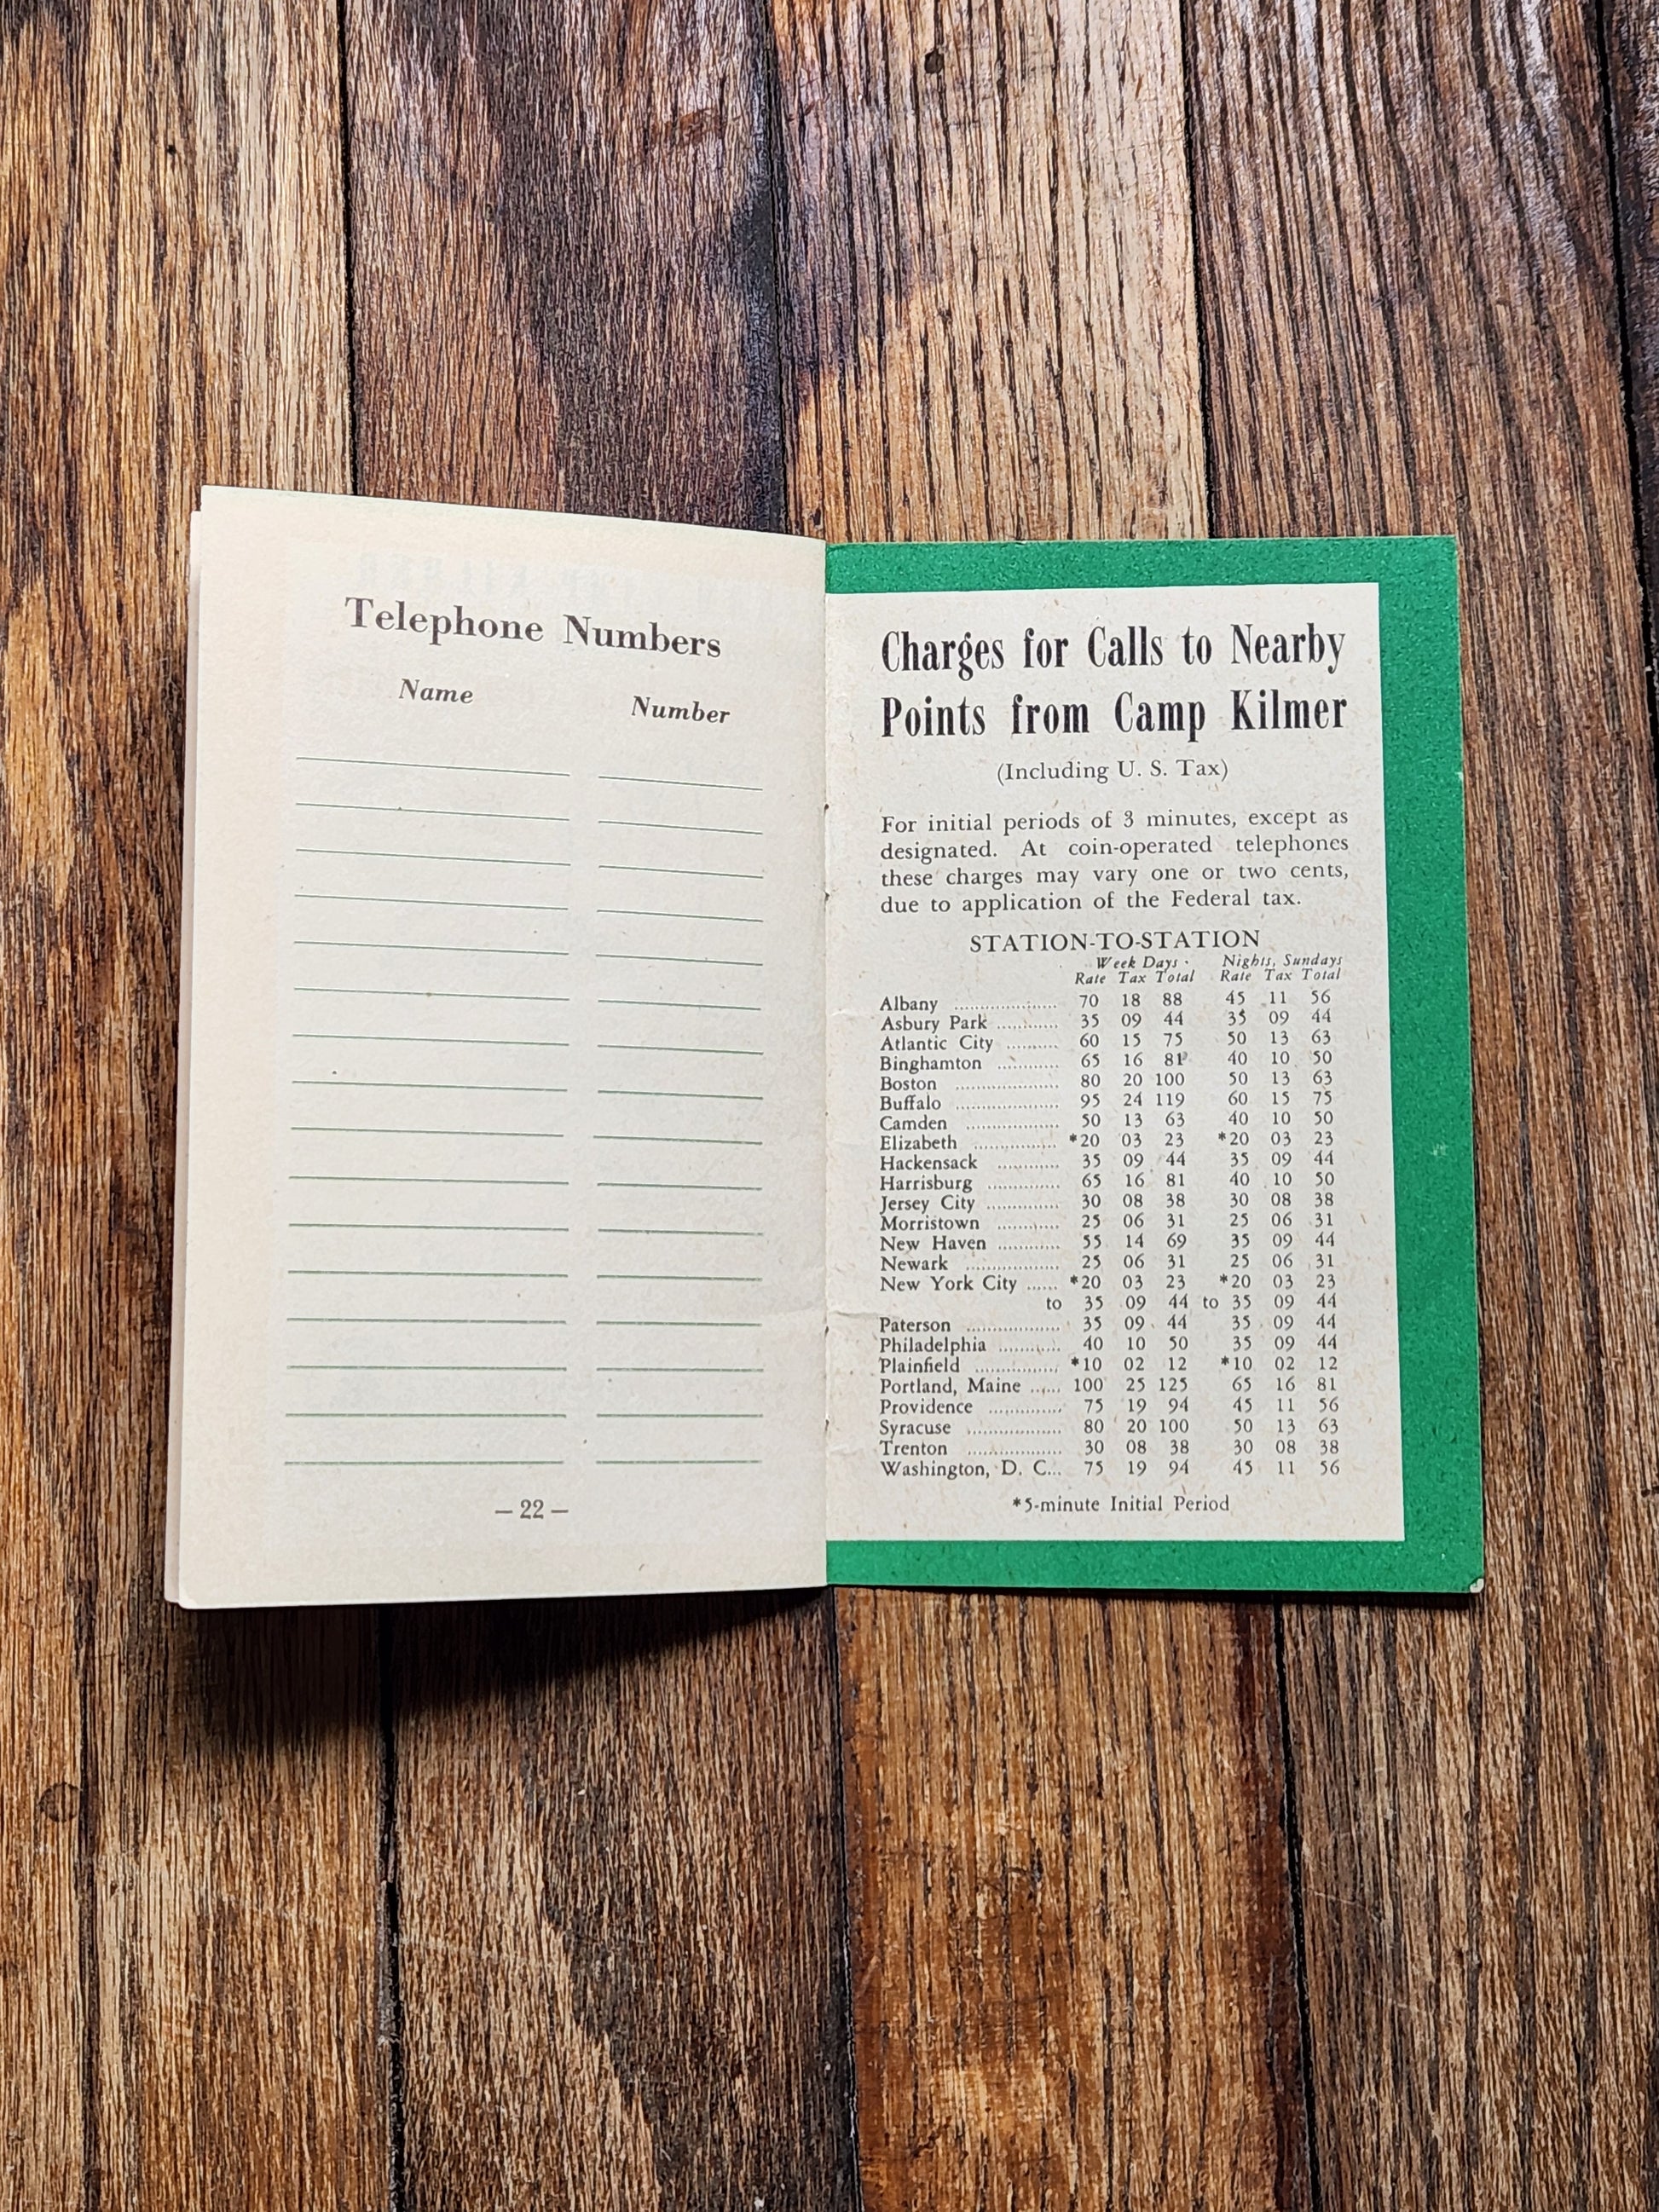 Telephone Numbers
Name Number
— 22 —
Charges for Calls to Nearby
Points from Camp Kilmer
(Including U. S. Tax)
For initial periods of 3 minutes, except as
designated. At coin-operated telephones
these charges may vary one or two cents,
due to application of the Federal tax.
STATION-TO-STATION
Week Days Nights, Sundays
Rate Tax Total Rate Tax Total
Albany .................... 70 18 88 45 11 56
Asbury Park ............ 35 09 44 35 09 44
Atlantic City .......... 60 15 75 50 13 63
Binghamton ............ 65 16 81 40 10 50
Boston .................... 80 20 100 50 13 63
Buffalo .................... 95 24 119 60 15 75
Camden .................. 50 13 63 40 10 50
Elizabeth ................ *20 03 23 *20 03 23
Hackensack ............ 35 09 44 35 09 44
Harrisburg .............. 65 16 81 40 10 50
Jersey City .............. 30 08 38 30 08 38
Morristown ............ 25 06 31 25 06 31
New Haven ............ 55 14 69 35 09 44
Newark .................. 25 06 31 25 06 31
New York City ...... *20 03 23 *20 03 23
to 35 09 44 to 35 09 44
Paterson .................. 35 09 44 35 09 44
Philadelphia ............ 40 10 50 35 09 44
Plainfield ................ *10 02 12 *10 02 12
Portland, Maine ...... 100 25 125 65 16 81
Providence .............. 75 19 94 45 11 56
Syracuse .................. 80 20 100 50 13 63
Trenton .................. 30 08 38 30 08 38
Washington, D. C... 75 19 94 45 11 56
*5-minute Initial Period